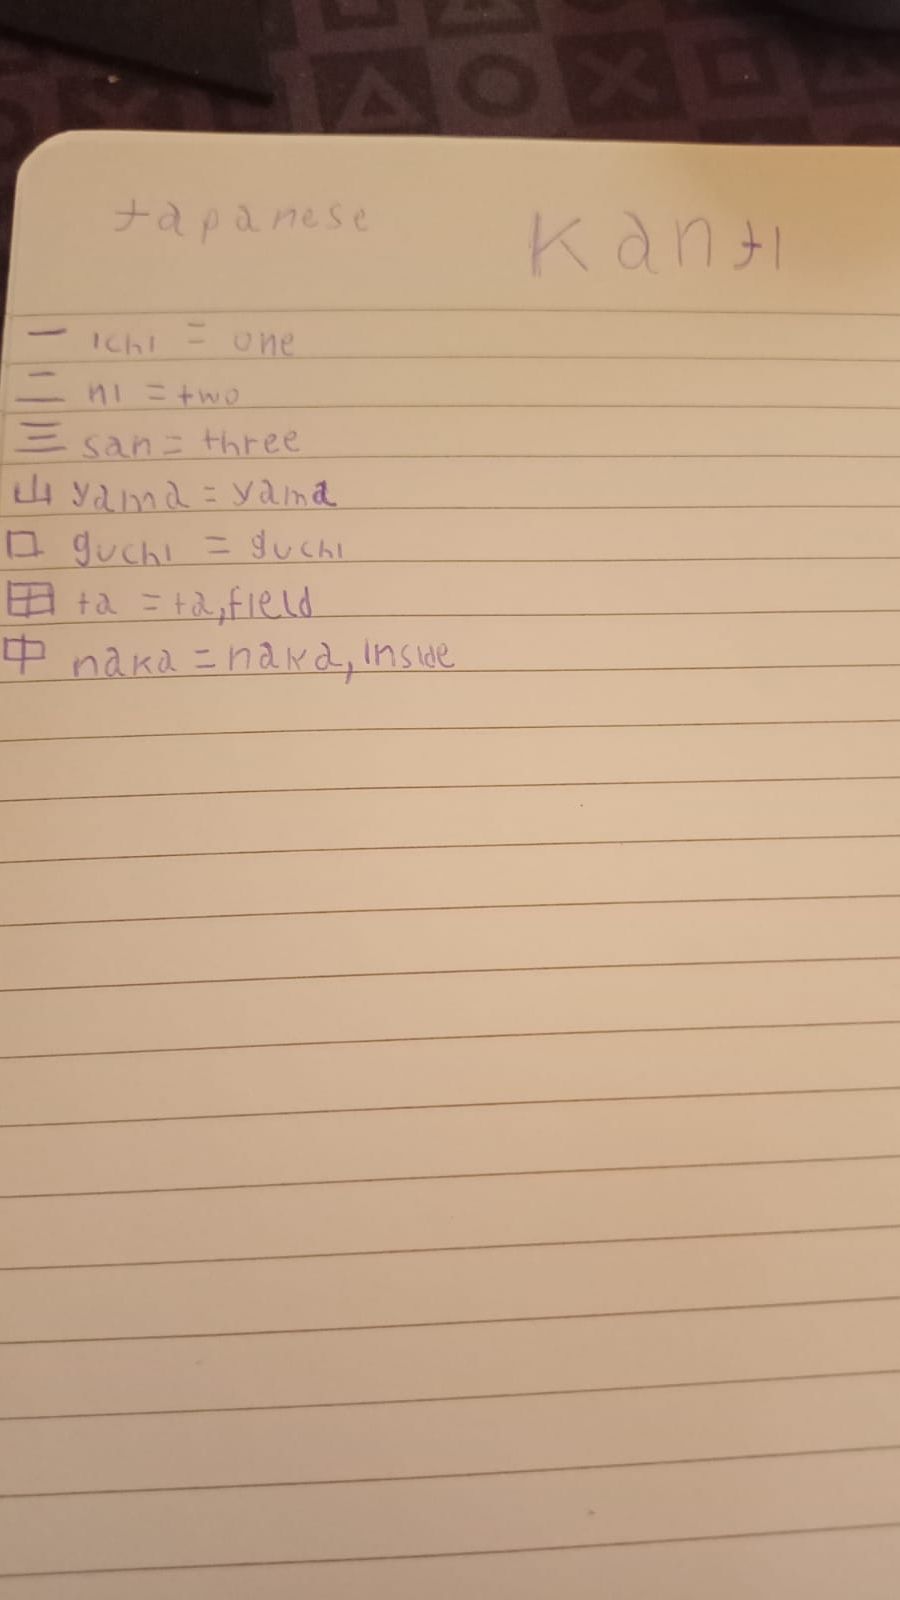 Japanese
Kanji
一 ichi = one
二 ni = two
三 san = three
山 yama = yama
口 guchi = guchi
田 ta = ta, field
中 naka = naka, inside